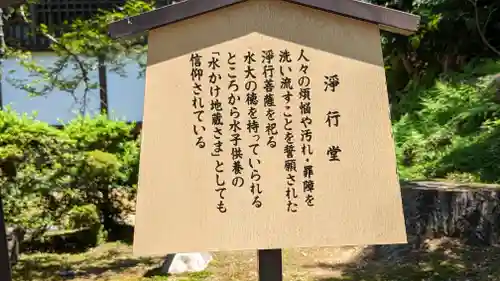 浄行堂
人々の煩悩や汚れ・罪障を
洗い流すことを誓願された
浄行菩薩を祀る
水大の徳を持っていられる
ところから水子供養の
「水かけ地蔵さま」としても
信仰されている